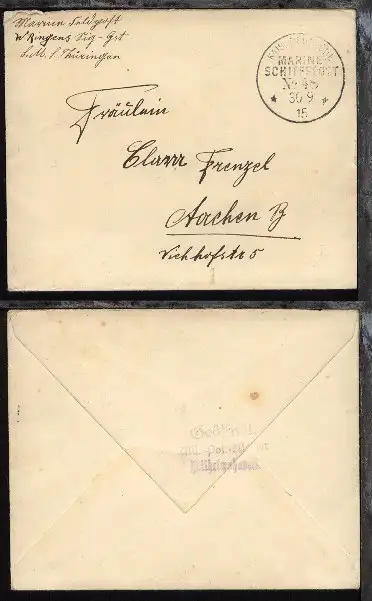 Marine Feldpost
W Ringens Sig-Gst
S.M.S. Thüringen
MARINE
SCHIFFSPOST
No 48
30 9
15
Fräulein
Clara Frenzel
Aachen B
Viehhofstr 5
Wilhelmshaven